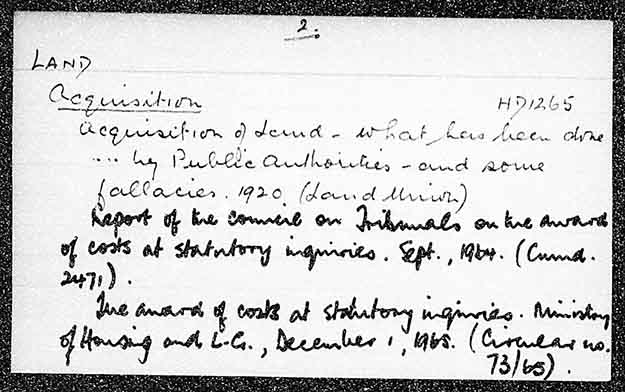 2.
LAND
Acquisition HD1265
Acquisition of Land - what has been done
... by Public Authorities - and some
fallacies. 1920. (Land Union)
Report of the Council on Tribunals on the award
of costs at statutory inquiries. Sept., 1964. (Cmnd.
2471).
The award of costs at statutory inquiries. Ministry
of Housing and L.G., December 1, 1965. (Circular no.
73/65).